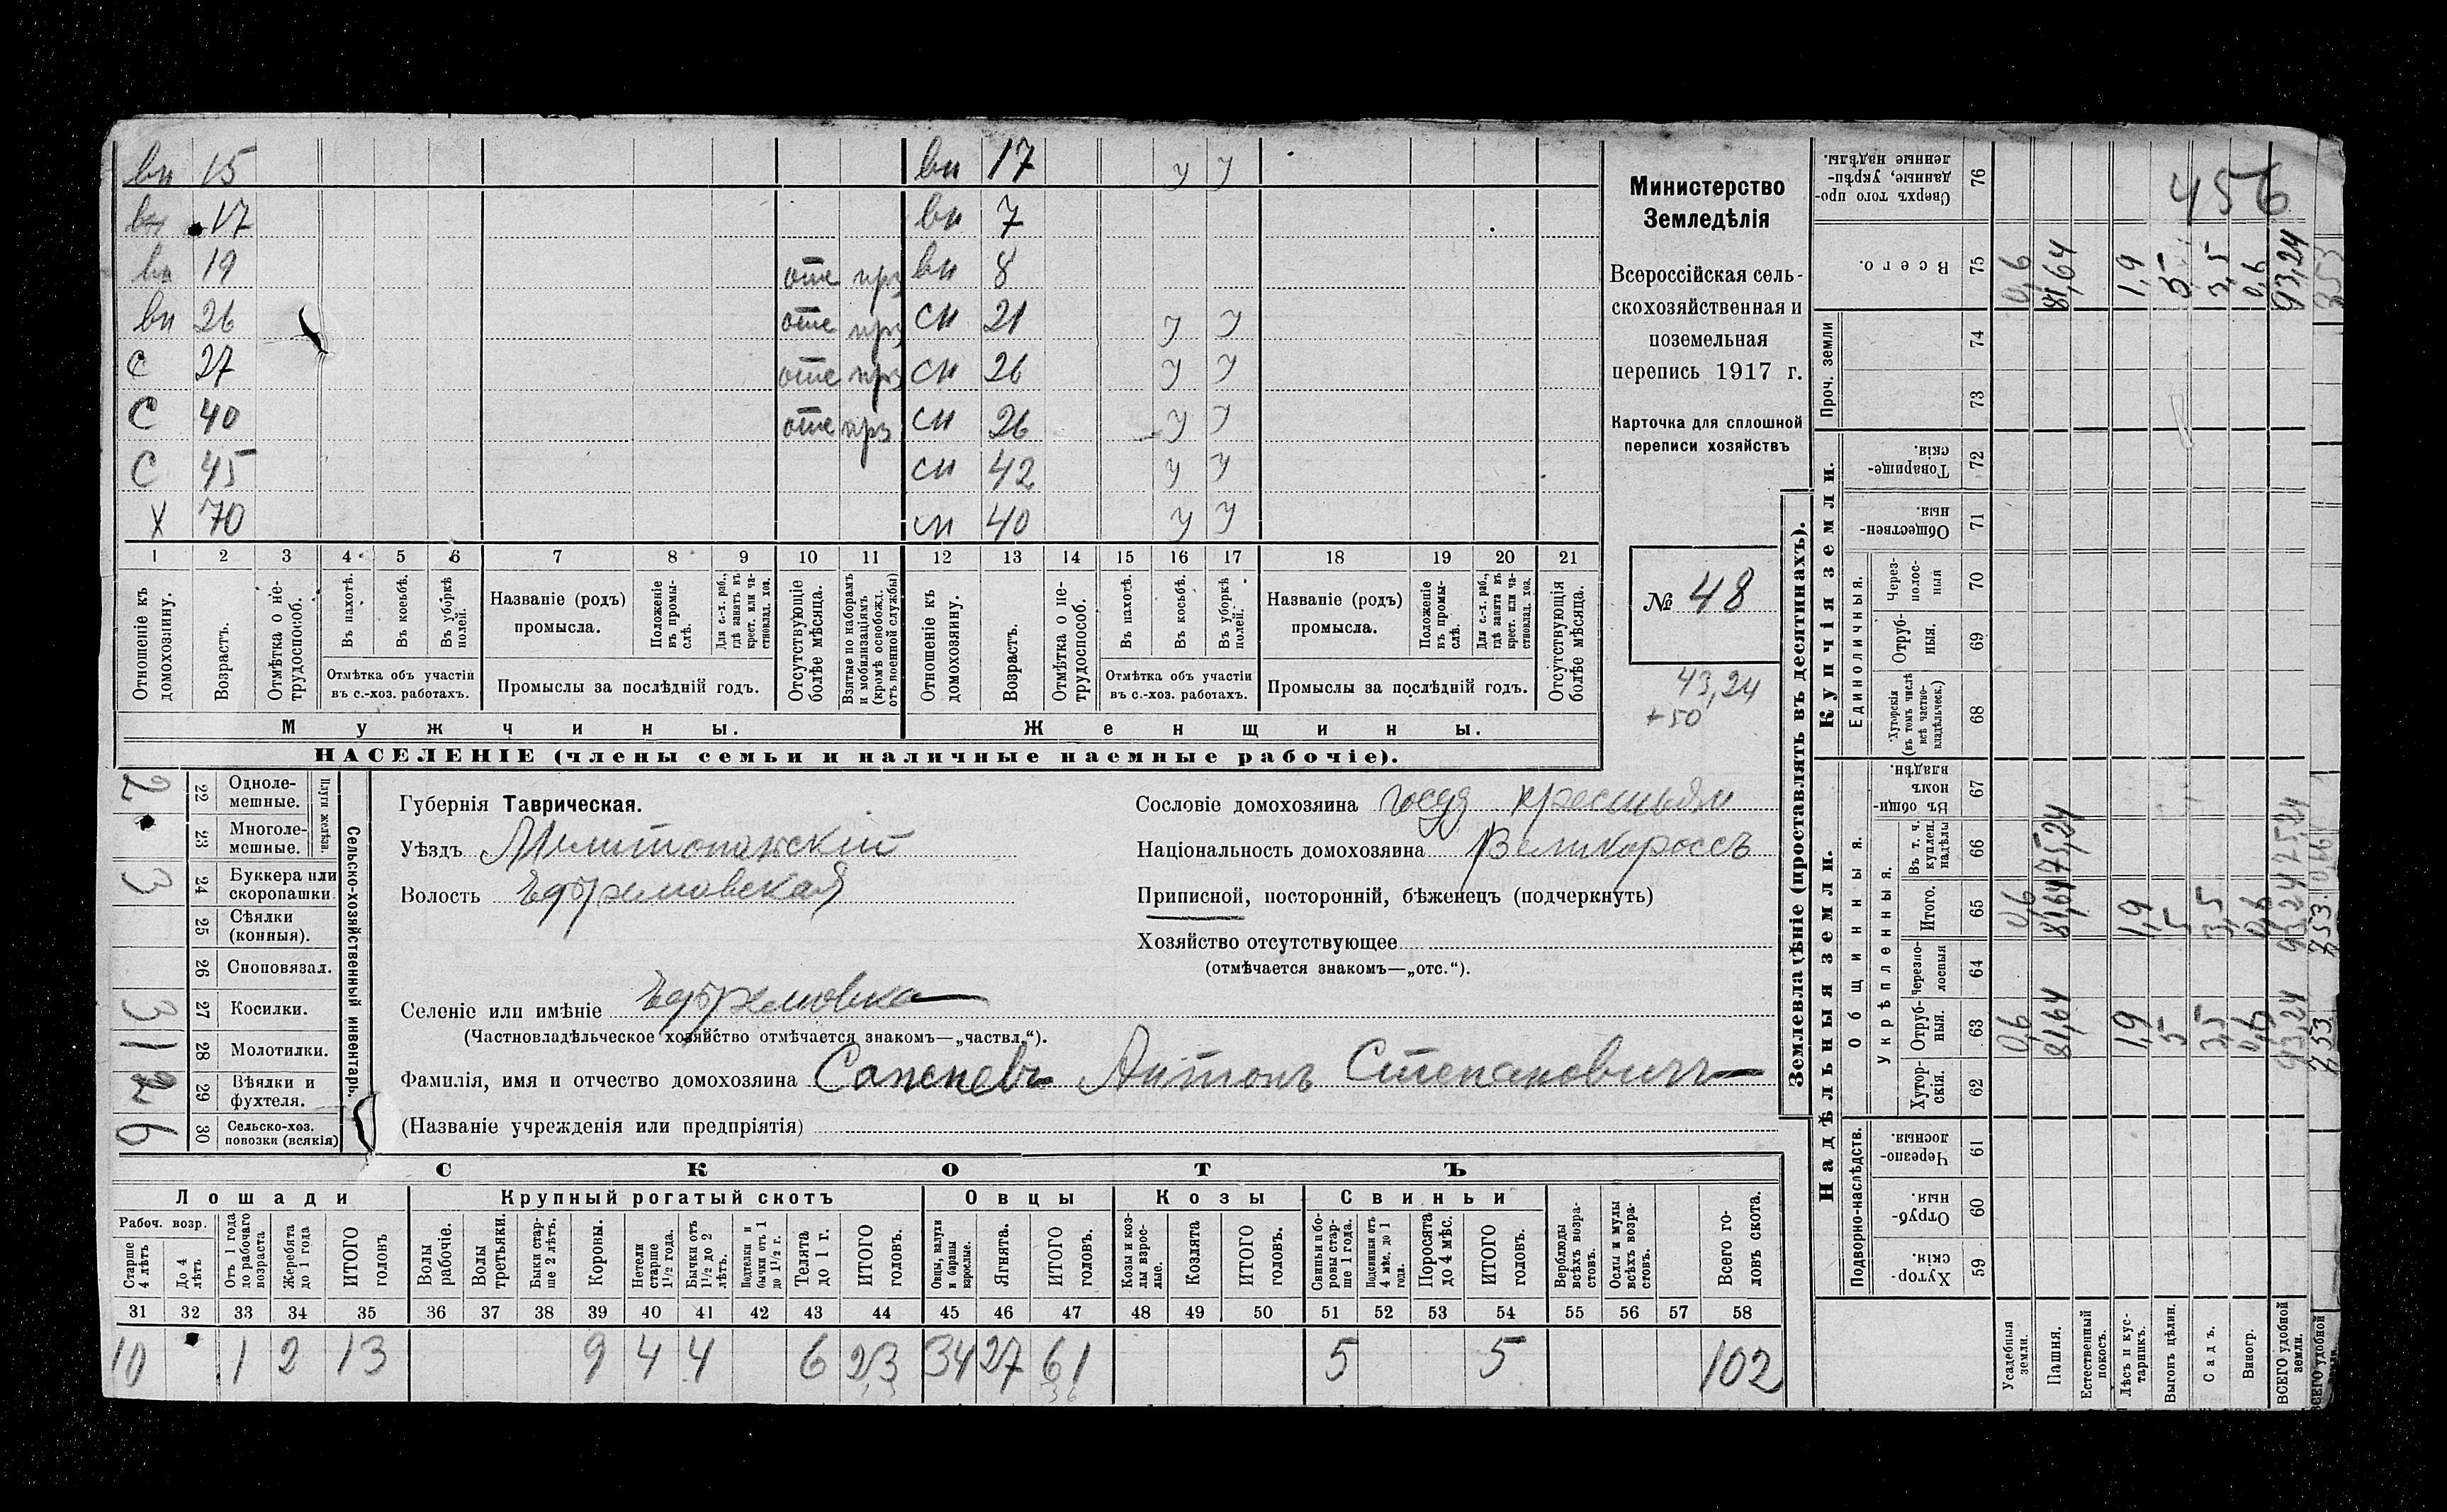 вн 15 вн 17 у у
вн 17 вн 7
вн 19 отс прз вн 8
вн 26 отс прз сн 21 у у
С 27 отс прз сн 26 у у
С 40 отс прз сн 26 у у
С 45 сн 42 у у
Х 70 сн 40 у у
1 2 3 4 5 6 7 8 9 10 11 12 13 14 15 16 17 18 19 20 21
Отношеніе къ домохозяину.
Возрастъ.
Отмѣтка о не-трудоспособ.
Въ пахотѣ.
Въ косьбѣ.
Въ уборкѣ полей.
Отмѣтка объ участіи
въ с.-хоз. работахъ.
Названіе (родъ)
промысла.
Положеніе въ промы-слѣ.
Для с.-х. раб., гдѣ занятъ въ крест. или ча-стновлад. хоз.
Промыслы за послѣдній годъ.
Отсутствующіе болѣе мѣсяца.
Взятые по наборамъ и мобилизаціямъ (кромѣ освобожд. отъ военной службы)
Отношеніе къ домохозяину.
Возрастъ.
Отмѣтка о не-трудоспособ.
Въ пахотѣ.
Въ косьбѣ.
Въ уборкѣ полей.
Отмѣтка объ участіи
въ с.-хоз. работахъ.
Названіе (родъ)
промысла.
Положеніе въ промы-слѣ.
Для с.-х. раб., гдѣ занята въ крест. или ча-стновлад. хоз.
Промыслы за послѣдній годъ.
Отсутствующія болѣе мѣсяца.
Мужчины. Женщины.
НАСЕЛЕНІЕ (члены семьи и наличные наемные рабочіе).
Министерство
Земледѣлія
Всероссійская сель-
скохозяйственная и
поземельная
перепись 1917 г.
Карточка для сплошной
переписи хозяйствъ
№ 48
43,24
+50
Сельско-хозяйственный инвентарь.
Плуги желѣзн.
2 22 Одноле-мешные.
23 Многоле-мешные.
3 24 Буккера или скоропашки
25 Сѣялки (конныя).
26 Сноповязал.
3 27 Косилки.
1 28 Молотилки.
2 29 Вѣялки и фухтеля.
6 30 Сельско-хоз. повозки (всякія)
Губернія Таврическая.
Уѣздъ Мелитопольскій
Волость Ефремовская
Селеніе или имѣніе Ефремовка
(Частновладѣльческое хозяйство отмѣчается знакомъ—„частвл.“).
Фамилія, имя и отчество домохозяина Антонъ Степановичъ
(Названіе учрежденія или предпріятія)
Сословіе домохозяина госуд крестьян
Національность домохозяина Великороссъ
Приписной, посторонній, бѣженецъ (подчеркнуть)
Хозяйство отсутствующее
(отмѣчается знакомъ—„отс.“).
СКОТЪ
Лошади Крупный рогатый скотъ Овцы Козы Свиньи
Рабоч. возр.
Старше 4 лѣтъ
До 4 лѣтъ
Отъ 1 года до рабочаго возраста
Жеребята до 1 года
ИТОГО головъ
Волы рабочіе.
Волы третьяки.
Быки стар-ше 2 лѣтъ.
Коровы.
Нетели старше 1½ года.
Бычки отъ 1½ до 2 лѣтъ.
Подтелки и бычки отъ 1 до 1½ г.
Телята до 1 г.
ИТОГО головъ.
Овцы, валухи и бараны взрослые.
Ягнята.
ИТОГО головъ.
Козы и коз-лы взрос-лые.
Козлята
ИТОГО головъ.
Свиньи и бо-ровы стар-ше 1 года.
Подсвинки отъ 4 мѣс. до 1 года.
Поросята до 4 мѣс.
ИТОГО головъ.
Верблюды всѣхъ возра-стовъ.
Ослы и мулы всѣхъ возра-стовъ.
Всего го-ловъ скота.
31 32 33 34 35 36 37 38 39 40 41 42 43 44 45 46 47 48 49 50 51 52 53 54 55 56 57 58
10 1 2 13 9 4 4 6 23 34 27 61 5 5 102
36
Землевладѣніе (проставлять въ десятинахъ).
Надѣльныя земли. Купчія земли. Проч. земли
Подворно-наслѣдств.
Общинныя.
Укрѣпленныя.
Единоличныя.
456
76 Сверхъ того про-данные, укрѣп-ленные надѣлы.
75 Всего. 0,6 81,64 1,9 5 3,5 0,6 93,24 853
74
73
72 Товарище-скія.
71 Обществен-ныя.
70 Через-полос-ныя
69 Отруб-ныя.
68 Хуторскія (въ томъ числѣ всѣ частно-владѣльческ.)
67 Въ общи-номъ владѣн.
66 Въ т. ч. куплен. надѣлы 75,24
65 Итого. 0,6 81,64 1,9 5 3,5 0,6 93,24 853
64 Черезпо-лосныя
63 Отруб-ныя. 0,6 81,64 1,9 5 3,5 0,6 93,24 853
62 Хутор-скія.
61 Черезпо-лосныя
60 Отруб-ныя.
59 Хутор-скія.
Усадебныя земли.
Пашня.
Естественный покосъ.
Лѣсъ и кус-тарникъ.
Выгонъ цѣлин.
Садъ.
Виногр.
ВСЕГО удобной земли.
ВСЕГО удобной